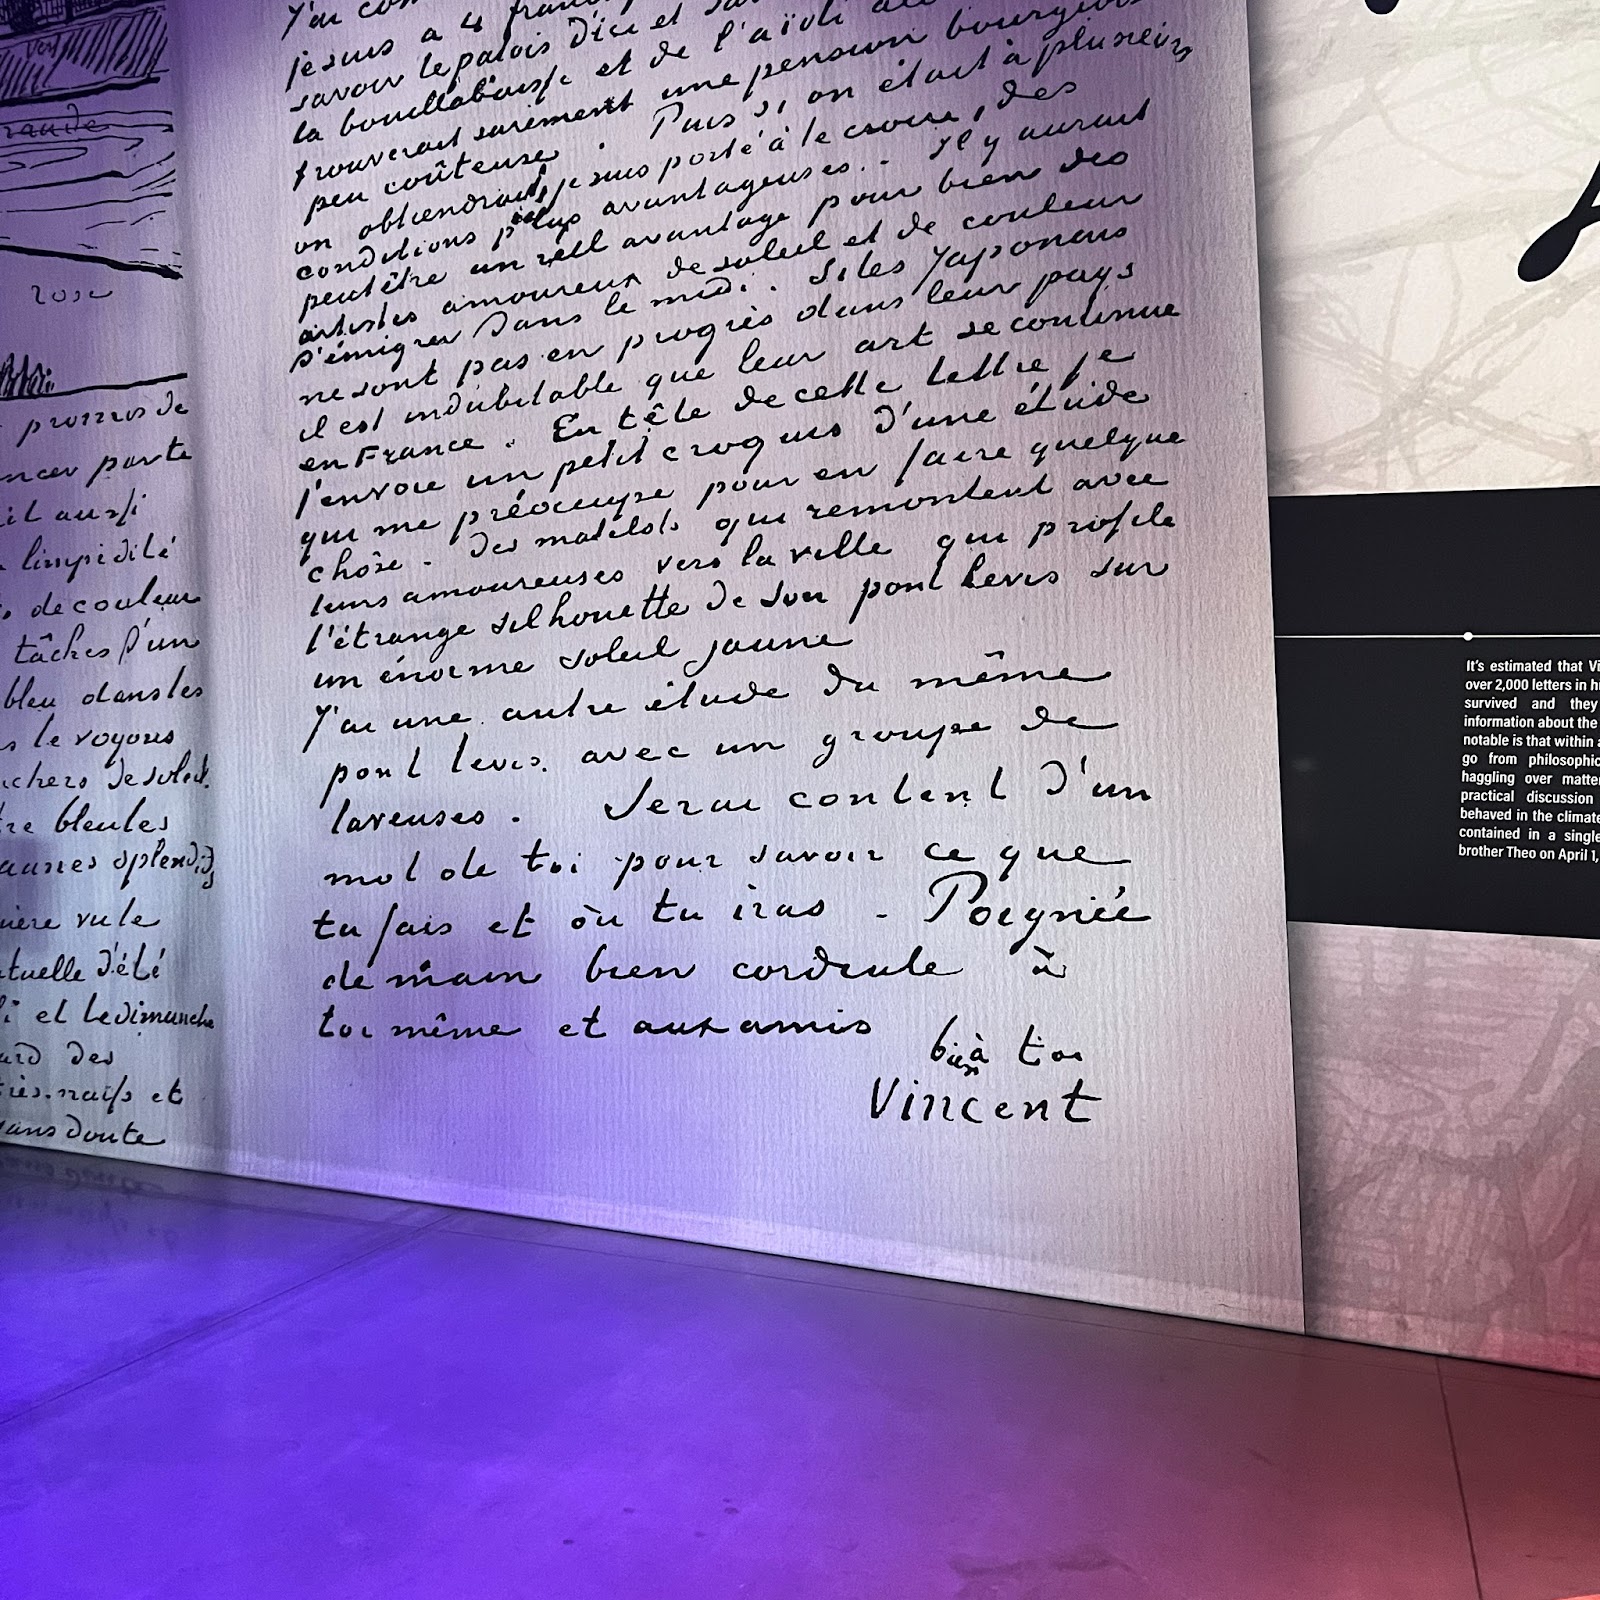 rande
rose
promes de
ncer parte
il aussi
limpidité
de couleur
tâches d'un
bleu dans les
s le voyons
chers de soleil.
tre bleu les
aunes splendides
ière vu le
tuelle d'été
i et le dimanche
ard des
très naïfs et
sans doute
J'ai com
je suis a 4 francs
savoir le patois d'ici et
la bouillabaisse et de l'aïoli
trouverait surement une pension bourgeoise
peu coûteuse. Puis si on était à plusieurs
on obtiendrait, je suis porté à le croire, des
conditions plus avantageuses. Il y aurait
peutêtre un réel avantage pour bien des
artistes amoureux de soleil et de couleur
d'émigrer dans le midi. Si les Japonais
ne sont pas en progrès dans leur pays
il est indubitable que leur art se continue
en France. En tête de cette lettre je
t'envoie un petit croquis d'une étude
qui me préoccupe pour en faire quelque
chôse. Des matelots qui remontent avec
leurs amoureuses vers la ville qui profile
l'étrange silhouette de son pont levis sur
un énorme soleil jaune
J'ai une autre étude du même
pont levis avec un groupe de
laveuses. Serai content d'un
mot de toi pour savoir ce que
tu fais et où tu iras. Poignée
de main bien cordiale à
toi même et aux amis
bien à toi
Vincent
It's estimated that Vi
over 2,000 letters in h
survived and they
information about the
notable is that within a
go from philosophic
haggling over matte
practical discussion
behaved in the climate
contained in a single
brother Theo on April 1,